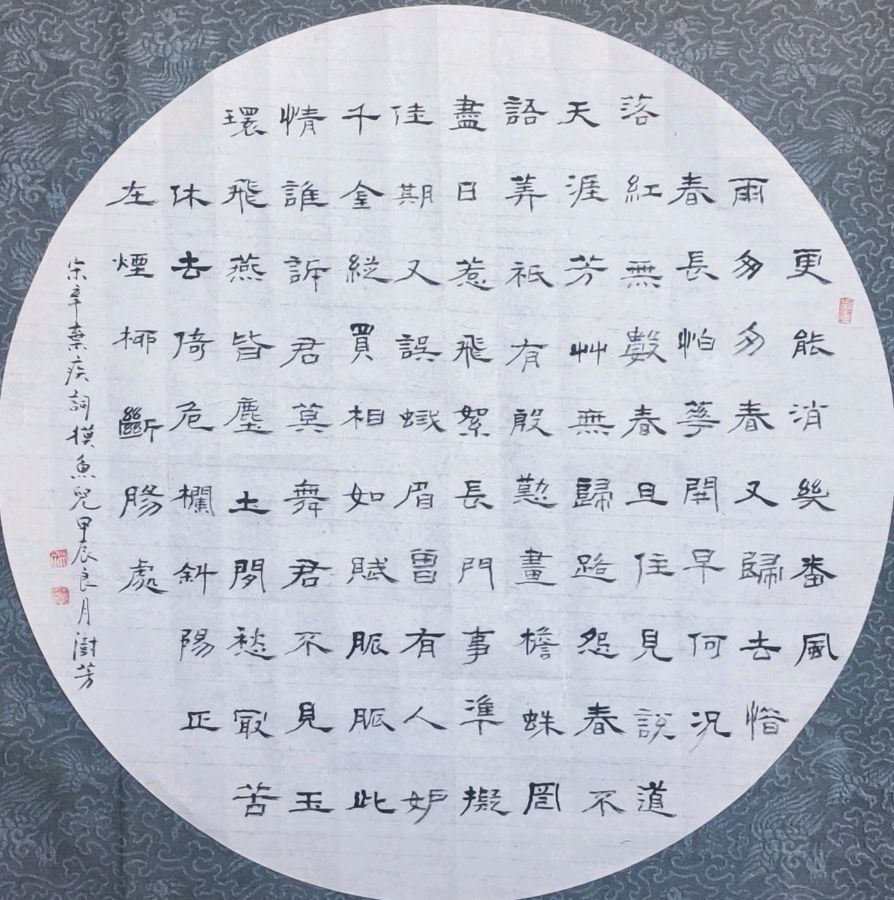 更能消幾番風
雨匆匆春又歸去惜
春長怕華開早何況
落紅無數春且住見說道
天涯芳艸無歸路怨春不
語筭祇有殷懃畫檐蛛罔
盡日惹飛絮長門事準擬
佳期又誤蛾眉曾有人妒
千金縱買相如賦脈脈此
情誰訴君莫舞君不見玉
環飛燕皆塵土閒愁最苦
休去倚危欄斜陽正
在煙柳斷腸處
宋辛棄疾詞摸魚兒甲辰良月澍芳